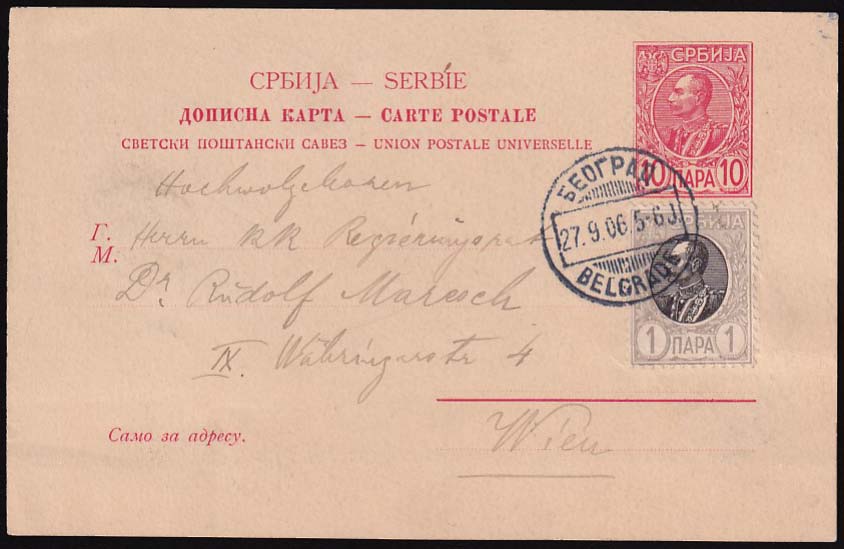 СРБИЈА
10 ПАРА 10
СРБИЈА — SERBIE
ДОПИСНА КАРТА — CARTE POSTALE
СВЕТСКИ ПОШТАНСКИ САВЕЗ – UNION POSTALE UNIVERSELLE
БЕОГРАД
27.9.06.5-6J.
BELGRADE
СРБИЈА
1 ПАРА 1
Hochwolgeboren
Г. Herrn KK Regierungsrat
М.
Dr. Rudolf Maresch
IX. Währingerstr 4
Само за адресу.
Wien